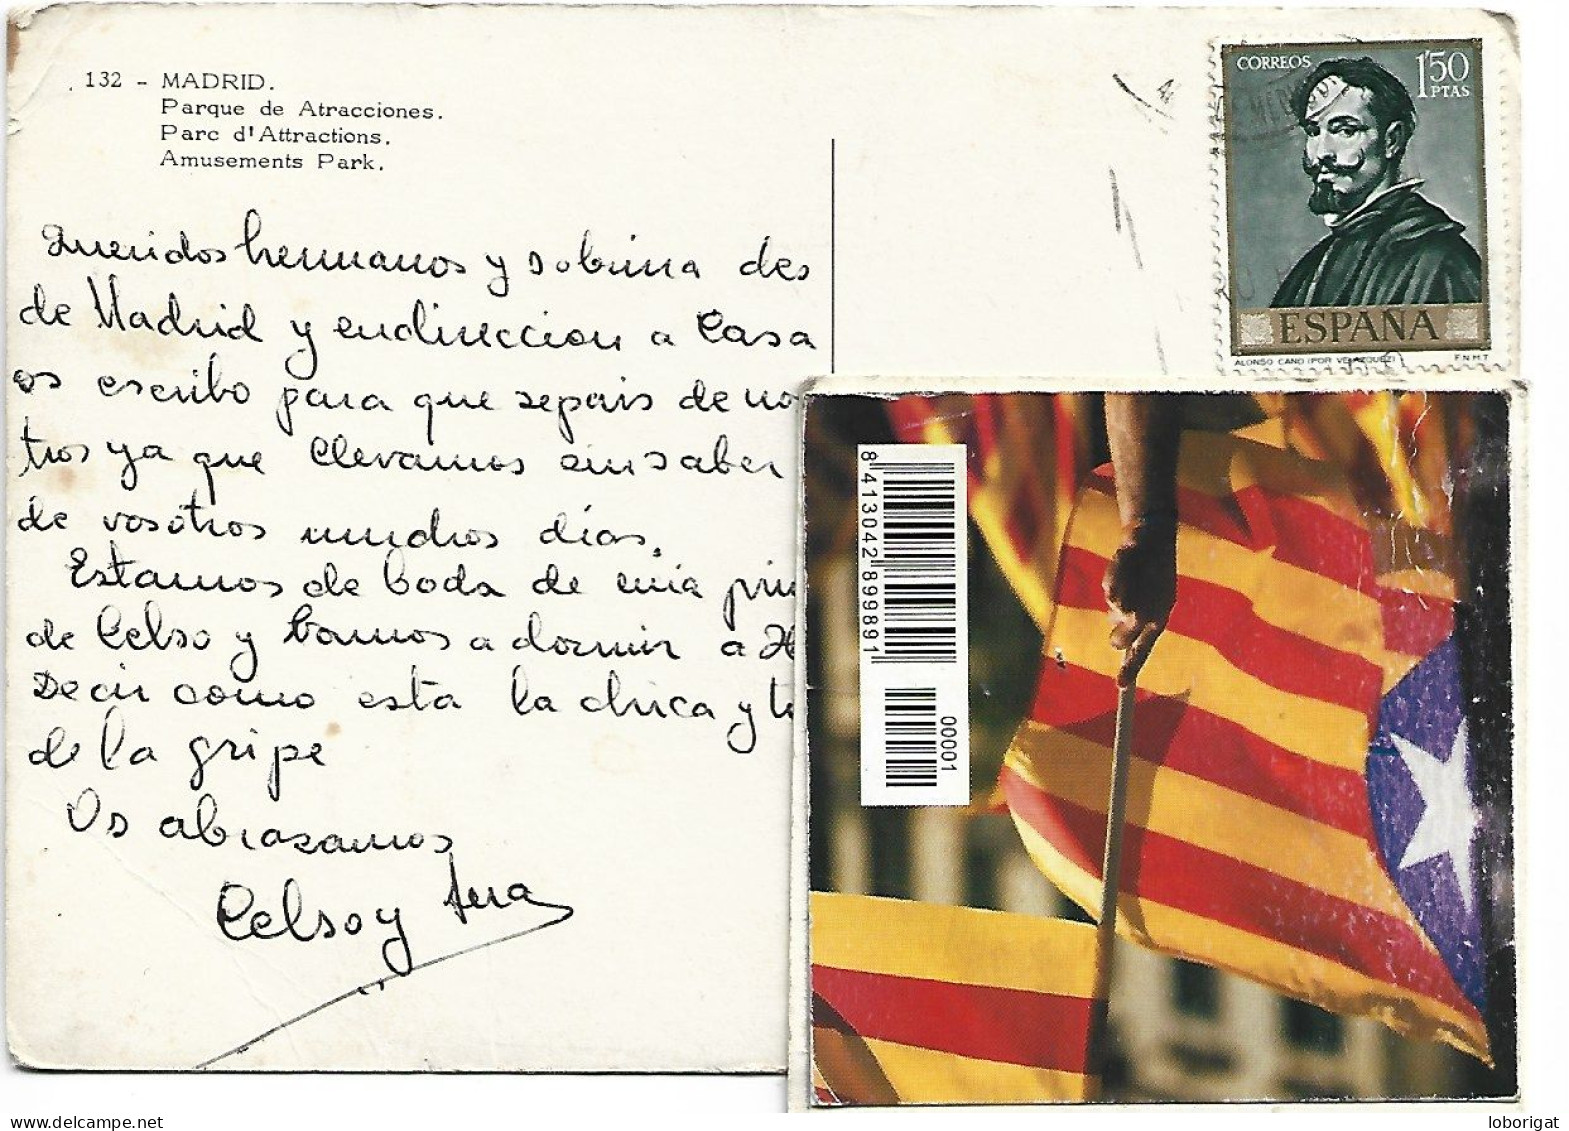 132 - MADRID.
Parque de Atracciones.
Parc d'Attractions.
Amusements Park.
Queridos hermanos y sobrina des
de Madrid y endireccion a Casa
os escribo para que sepais de no
tros ya que llevamos sin saber
de vosotros muchos días.
Estamos de boda de una
de Celso y bamos a dormir a
Decir como esta la chica y
de la gripe
Os abrazamos
Celso y
CORREOS
1'50
PTAS
ESPAÑA
ALONSO CANO (POR VELAZQUEZ)
F.N.M.T
8 413042 899891
00001
delcampe.net
loborigat